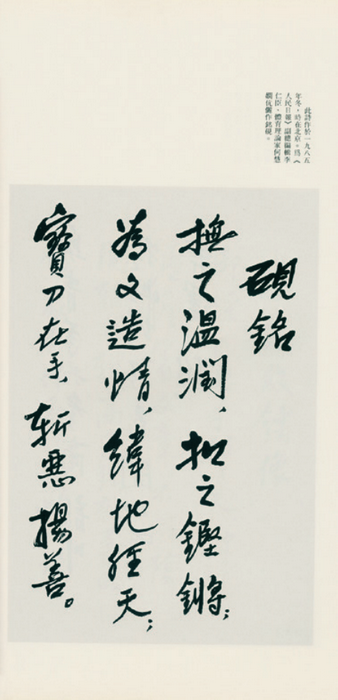 此詩作於一九八五
年冬，時在北京。爲《
人民日報》副總編輯李
仁臣、體育理論家何慧
嫻伉儷作銘硯。
硯銘
撫之溫潤，扣之鏗鏘；
為文造情，緯地經天；
寶刀在手，斬惡揚善。